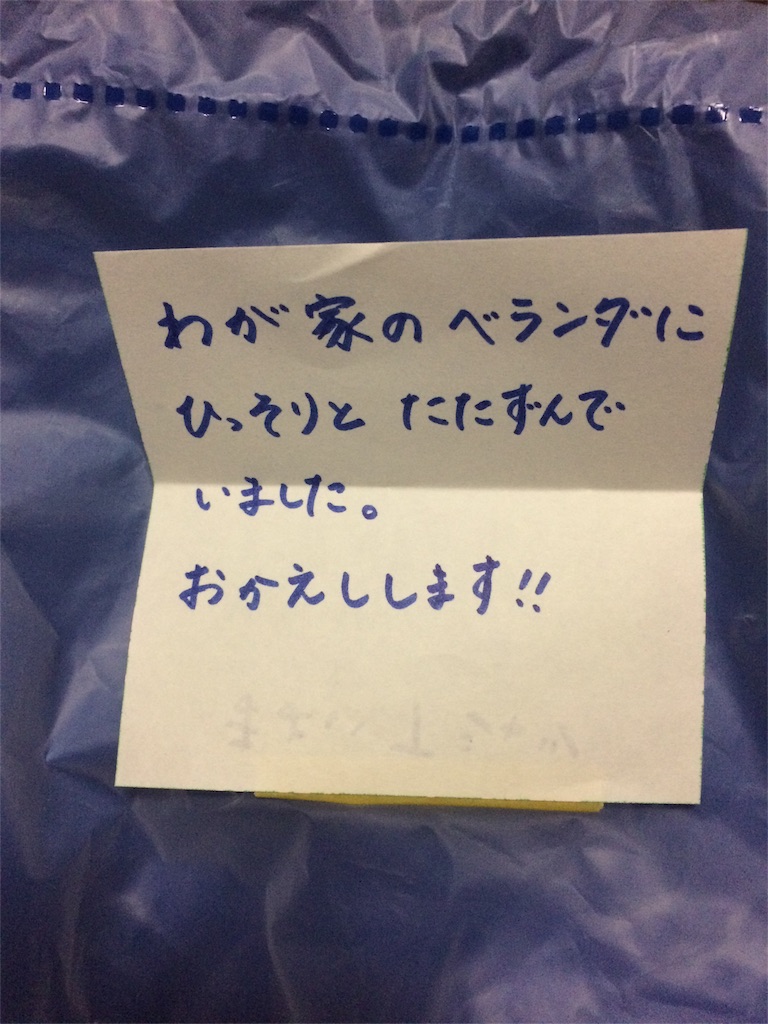 わが家のベランダに
ひっそりと たたずんで
いました。
おかえしします!!